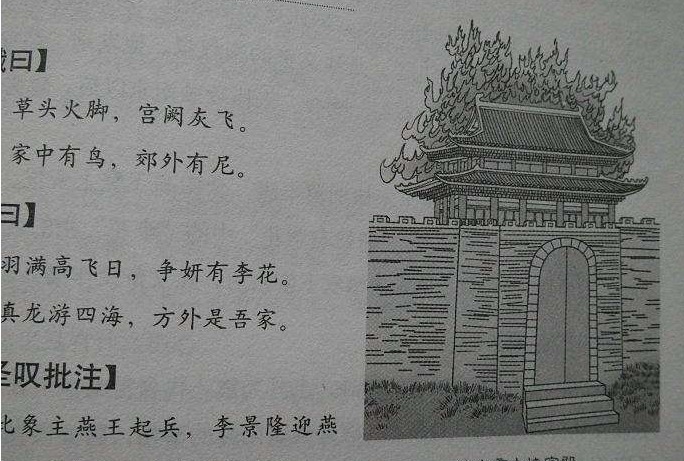 曰】
草头火脚，宫阙灰飞。
家中有鸟，郊外有尼。
曰】
羽满高飞日，争妍有李花。
真龙游四海，方外是吾家。
圣叹批注】
此象主燕王起兵，李景隆迎燕